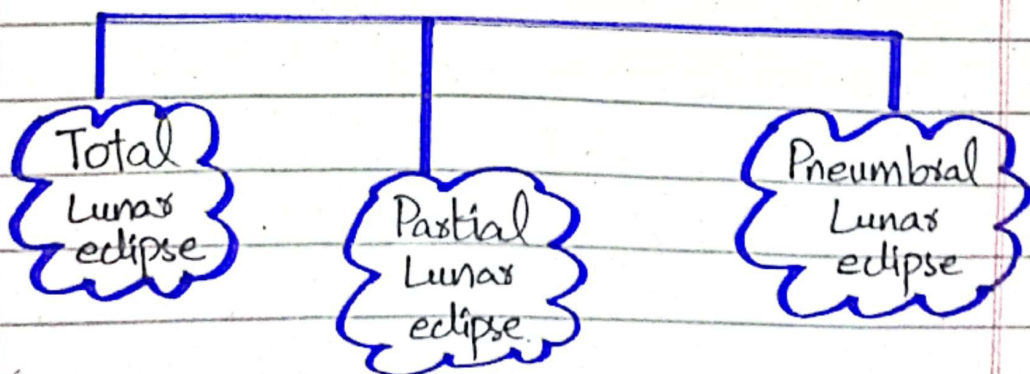 Total
Lunar
eclipse
Partial
Lunar
eclipse.
Pneumbral
Lunar
eclipse